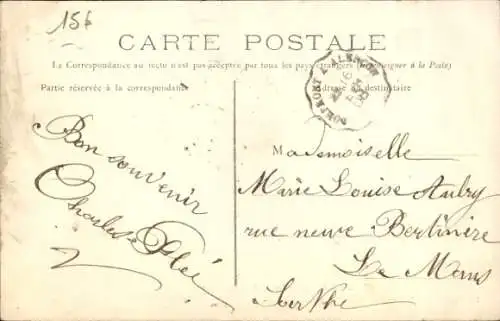 15f
CARTE POSTALE
La Correspondance au recto n'est pas acceptée par tous les pays étrangers (Se renseigner à la Poste)
Partie réservée à la correspondance
Adresse du destinataire
DOMFRONT A ALENÇON
16
Bon souvenir
Charles
Mademoiselle
Marie Louise Aubry
rue neuve Bertinière
Le Mans
Sarthe